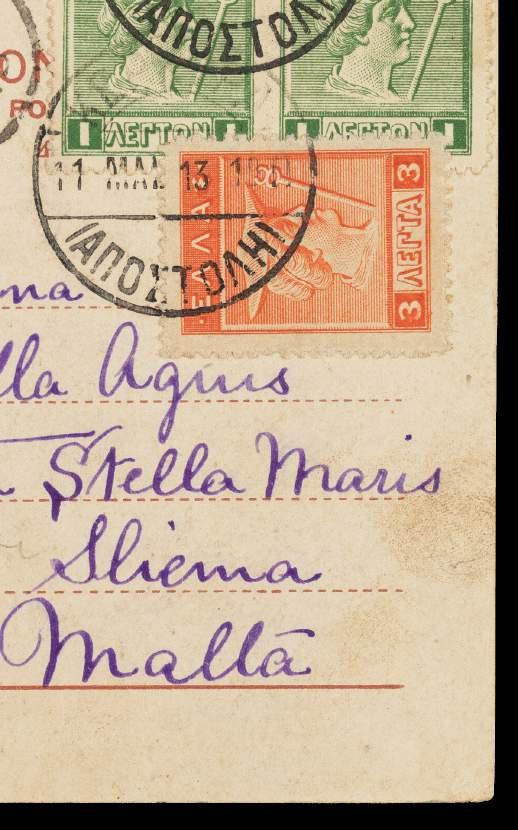 (ΑΠΟΣΤΟΛ
1 ΛΕΠΤΟΝ 1
1 ΛΕΠΤΟΝ 1
11 ΜΑΪ 13
(ΑΠΟΣΤΟΛΗ)
ΕΛΛΑΣ
3 ΛΕΠΤΑ 3
na
lla Agius
Stella Maris
Sliema
Malta